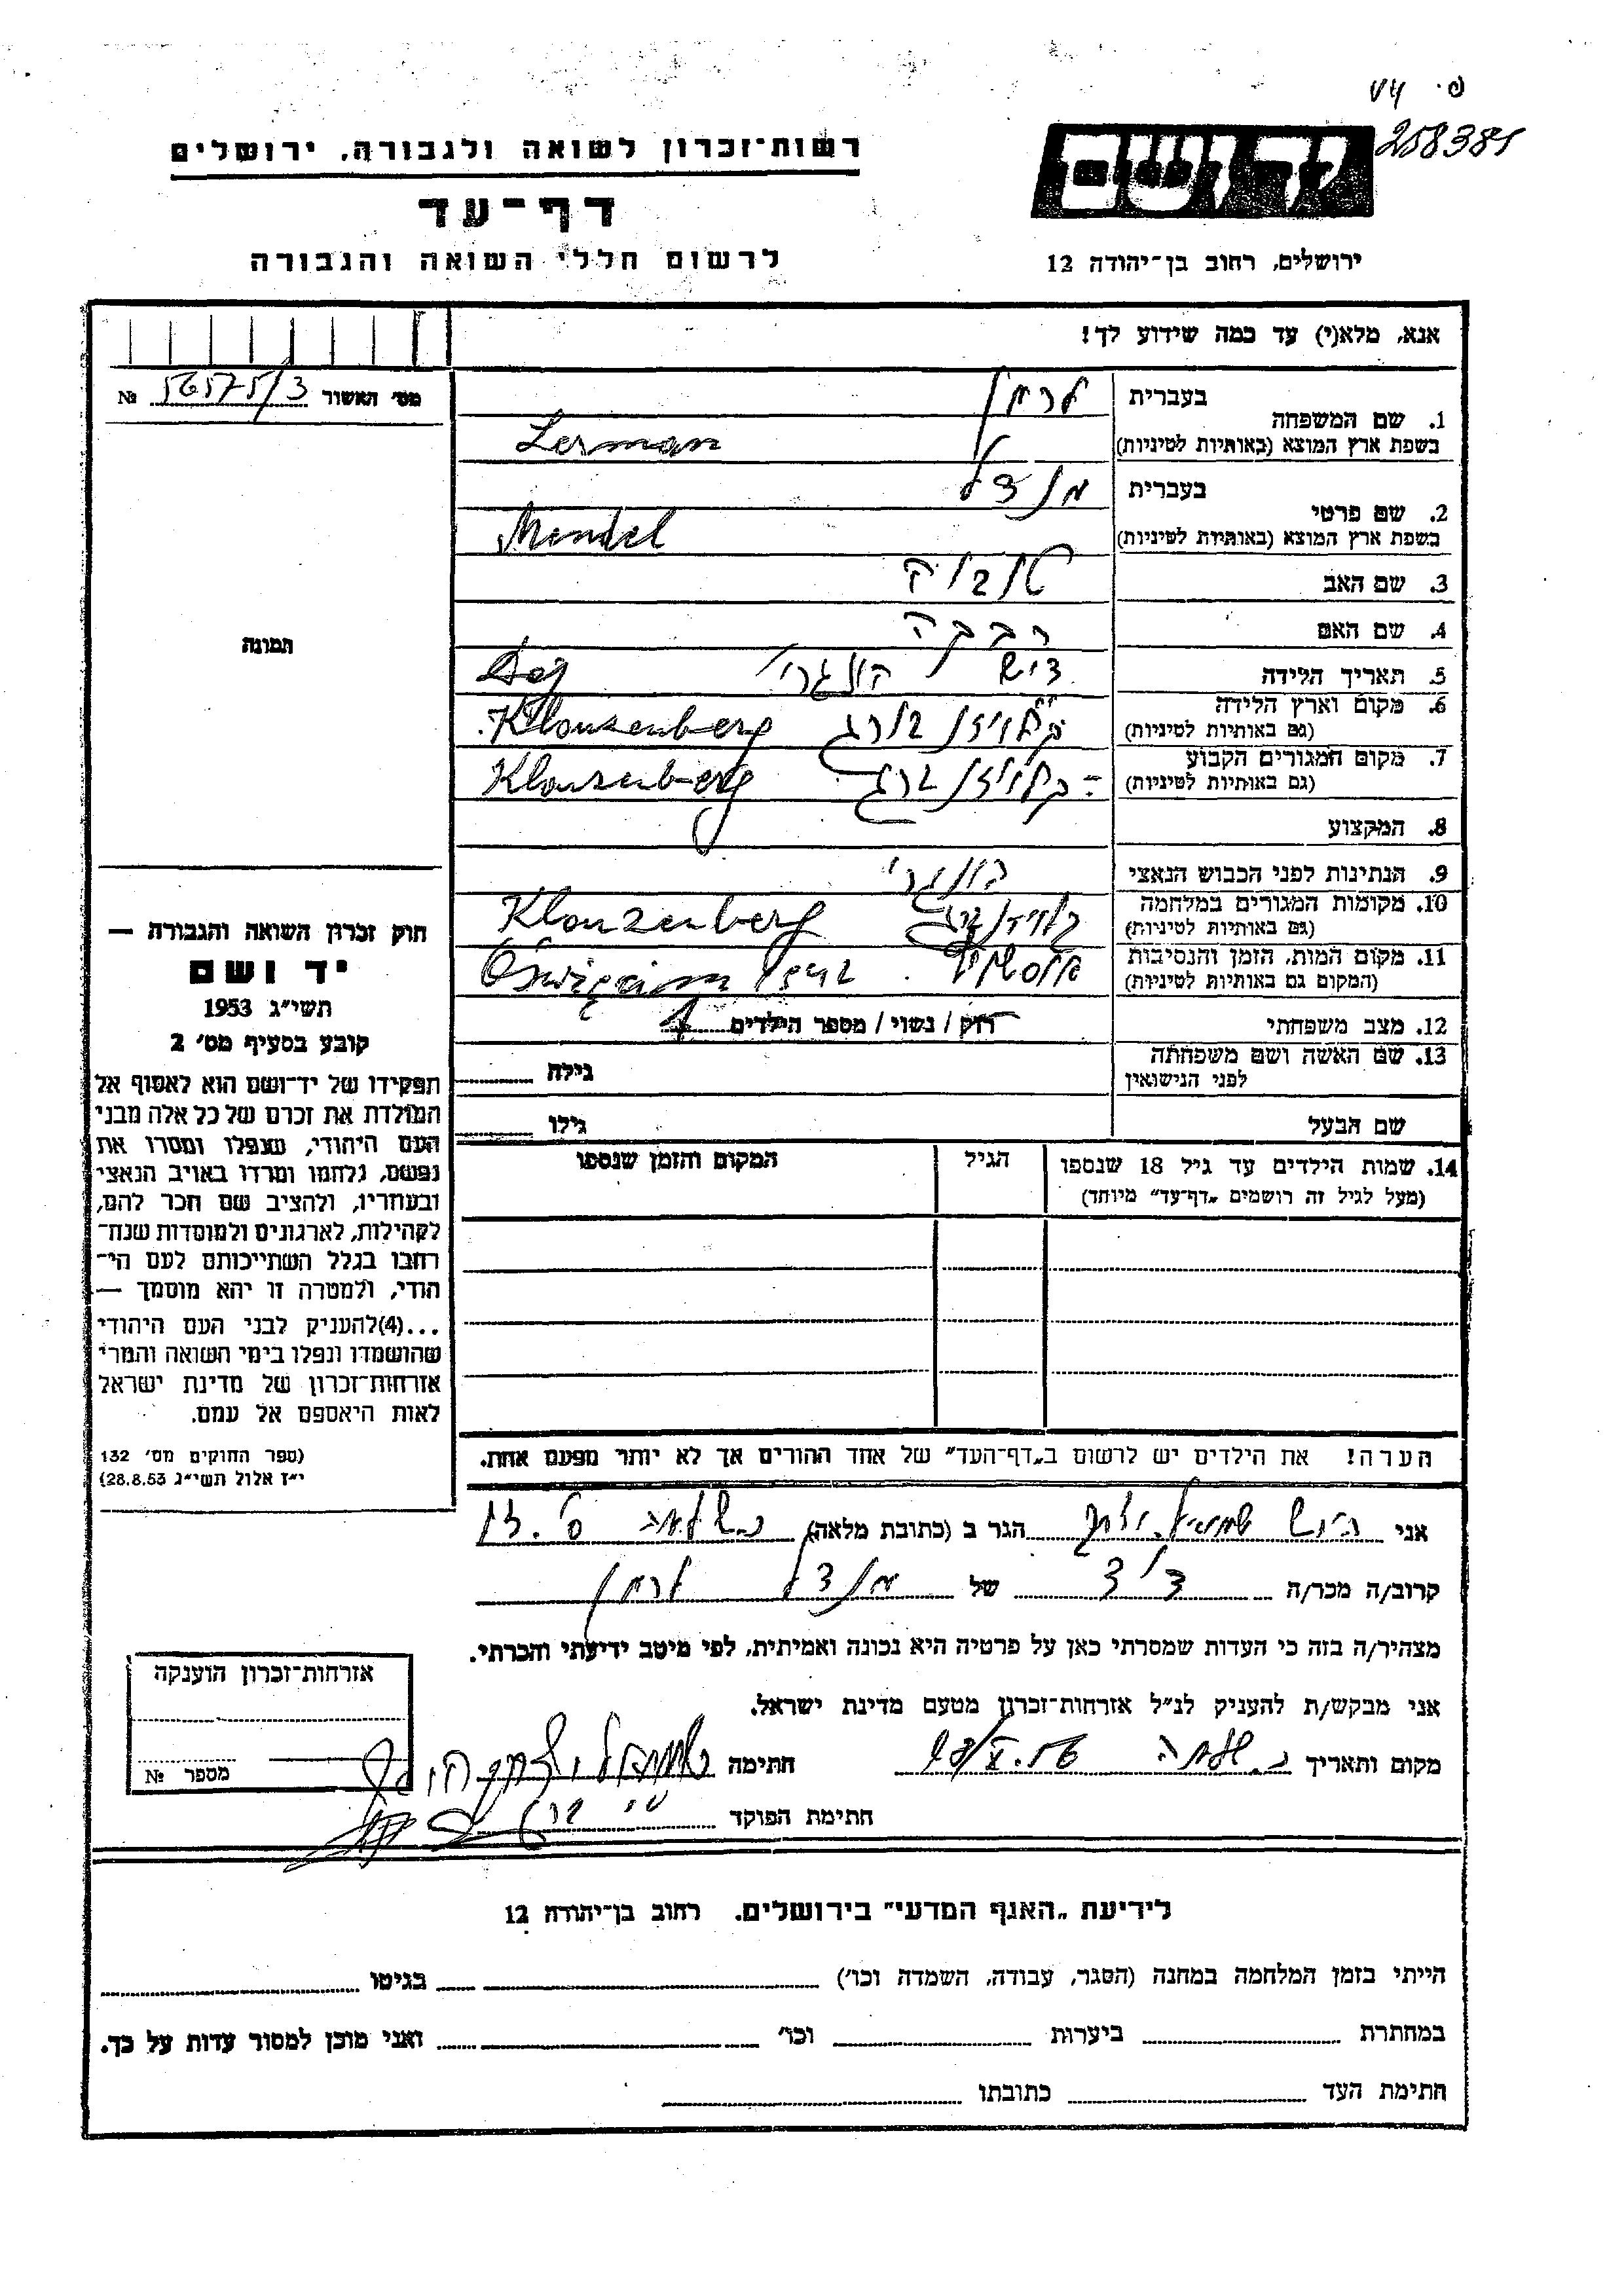 258381
רשות־זכרון לשואה ולגבורה, ירושלים
דף־עד
לרשום חללי השואה והגבורה
ירושלים, רחוב בן־יהודה 12
אנא, מלא(י) עד כמה שידוע לך!
מס' האשור № 56575/3
תמונה
בעברית לרמן
1. שם המשפחה
בשפת ארץ המוצא (באותיות לטיניות) Lerman
בעברית מנדל
2. שם פרטי
בשפת ארץ המוצא (באותיות לטיניות) Mendel
3. שם האב
4. שם האם רבקה
5. תאריך הלידה
דיש הונגרי Dej
6. מקום וארץ הלידה
(גם באותיות לטיניות) קלויזנבורג Klouzenberg
7. מקום המגורים הקבוע
(גם באותיות לטיניות) קלויזנברג Klouzenberg
8. המקצוע
9. הנתינות לפני הכבוש הנאצי הונגרי
10. מקומות המגורים במלחמה
(גם באותיות לטיניות) קלויזנברג Klouzenberg
11. מקום המות, הזמן והנסיבות
(המקום גם באותיות לטיניות) 1942
12. מצב משפחתי רוק / נשוי / מספר הילדים
13. שם האשה ושם משפחתה
לפני הנישואין גילה
שם הבעל גילו
14. שמות הילדים עד גיל 18 שנספו
(מעל לגיל זה רושמים „דף־עד" מיוחד)
הגיל
המקום והזמן שנספו
הערה! את הילדים יש לרשום ב„דף־העד" של אחד ההורים אך לא יותר מפעם אחת.
חוק זכרון השואה והגבורה —
יד ושם
תשי"ג 1953
קובע בסעיף מס' 2
תפקידו של יד־ושם הוא לאסוף אל
המולדת את זכרם של כל אלה מבני
העם היהודי, שנפלו ומסרו את
נפשם, נלחמו ומרדו באויב הנאצי
ובעוזריו, ולהציב שם וזכר להם,
לקהילות, לארגונים ולמוסדות שנח־
רבו בגלל השתייכותם לעם הי־
הודי, ולמטרה זו יהא מוסמך —
...(4)להעניק לבני העם היהודי
שהושמדו ונפלו בימי השואה והמרי
אזרחות־זכרון של מדינת ישראל
לאות היאספם אל עמם.
(ספר החוקים מס' 132
י"ז אלול תשי"ג 28.8.53)
אני הגר ב (כתובת מלאה)
קרוב/ה מכר/ה דוד של מנדל לרמן
מצהיר/ה בזה כי העדות שמסרתי כאן על פרטיה היא נכונה ואמיתית, לפי מיטב ידיעתי והכרתי.
אני מבקש/ת להעניק לנ"ל אזרחות־זכרון מטעם מדינת ישראל.
מקום ותאריך חתימה
חתימת הפוקד
אזרחות־זכרון הוענקה
מספר №
לידיעת „האגף המדעי" בירושלים. רחוב בן־יהודה 12
הייתי בזמן המלחמה במחנה (הסגר, עבודה, השמדה וכו') בגיטו
במחתרת ביערות וכו' ואני מוכן למסור עדות על כך.
חתימת העד כתובתו